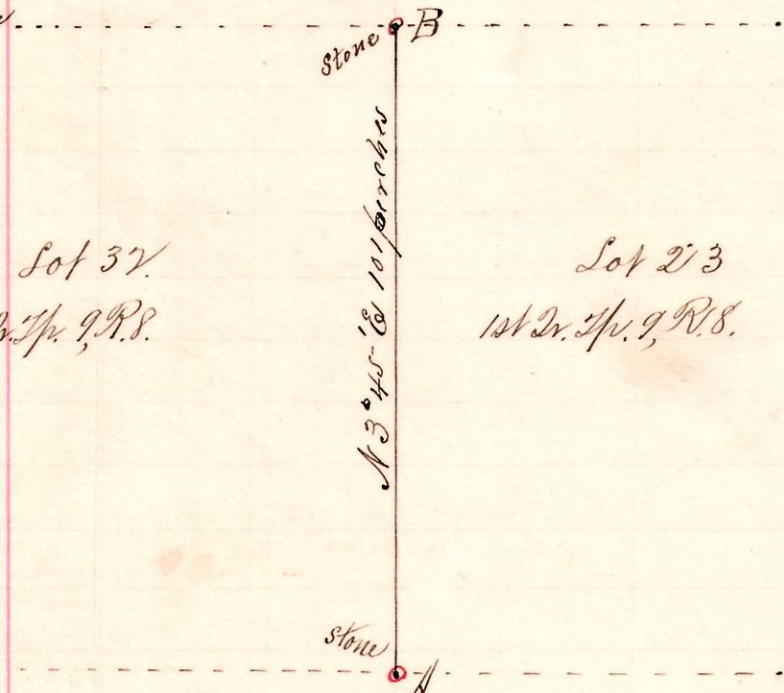 B
Stone
N 3° 45' E 101 perches
Lot 32.
Tp. 9, R. 8.
Lot 23
1st Qr. Tp. 9, R. 8.
Stone
A